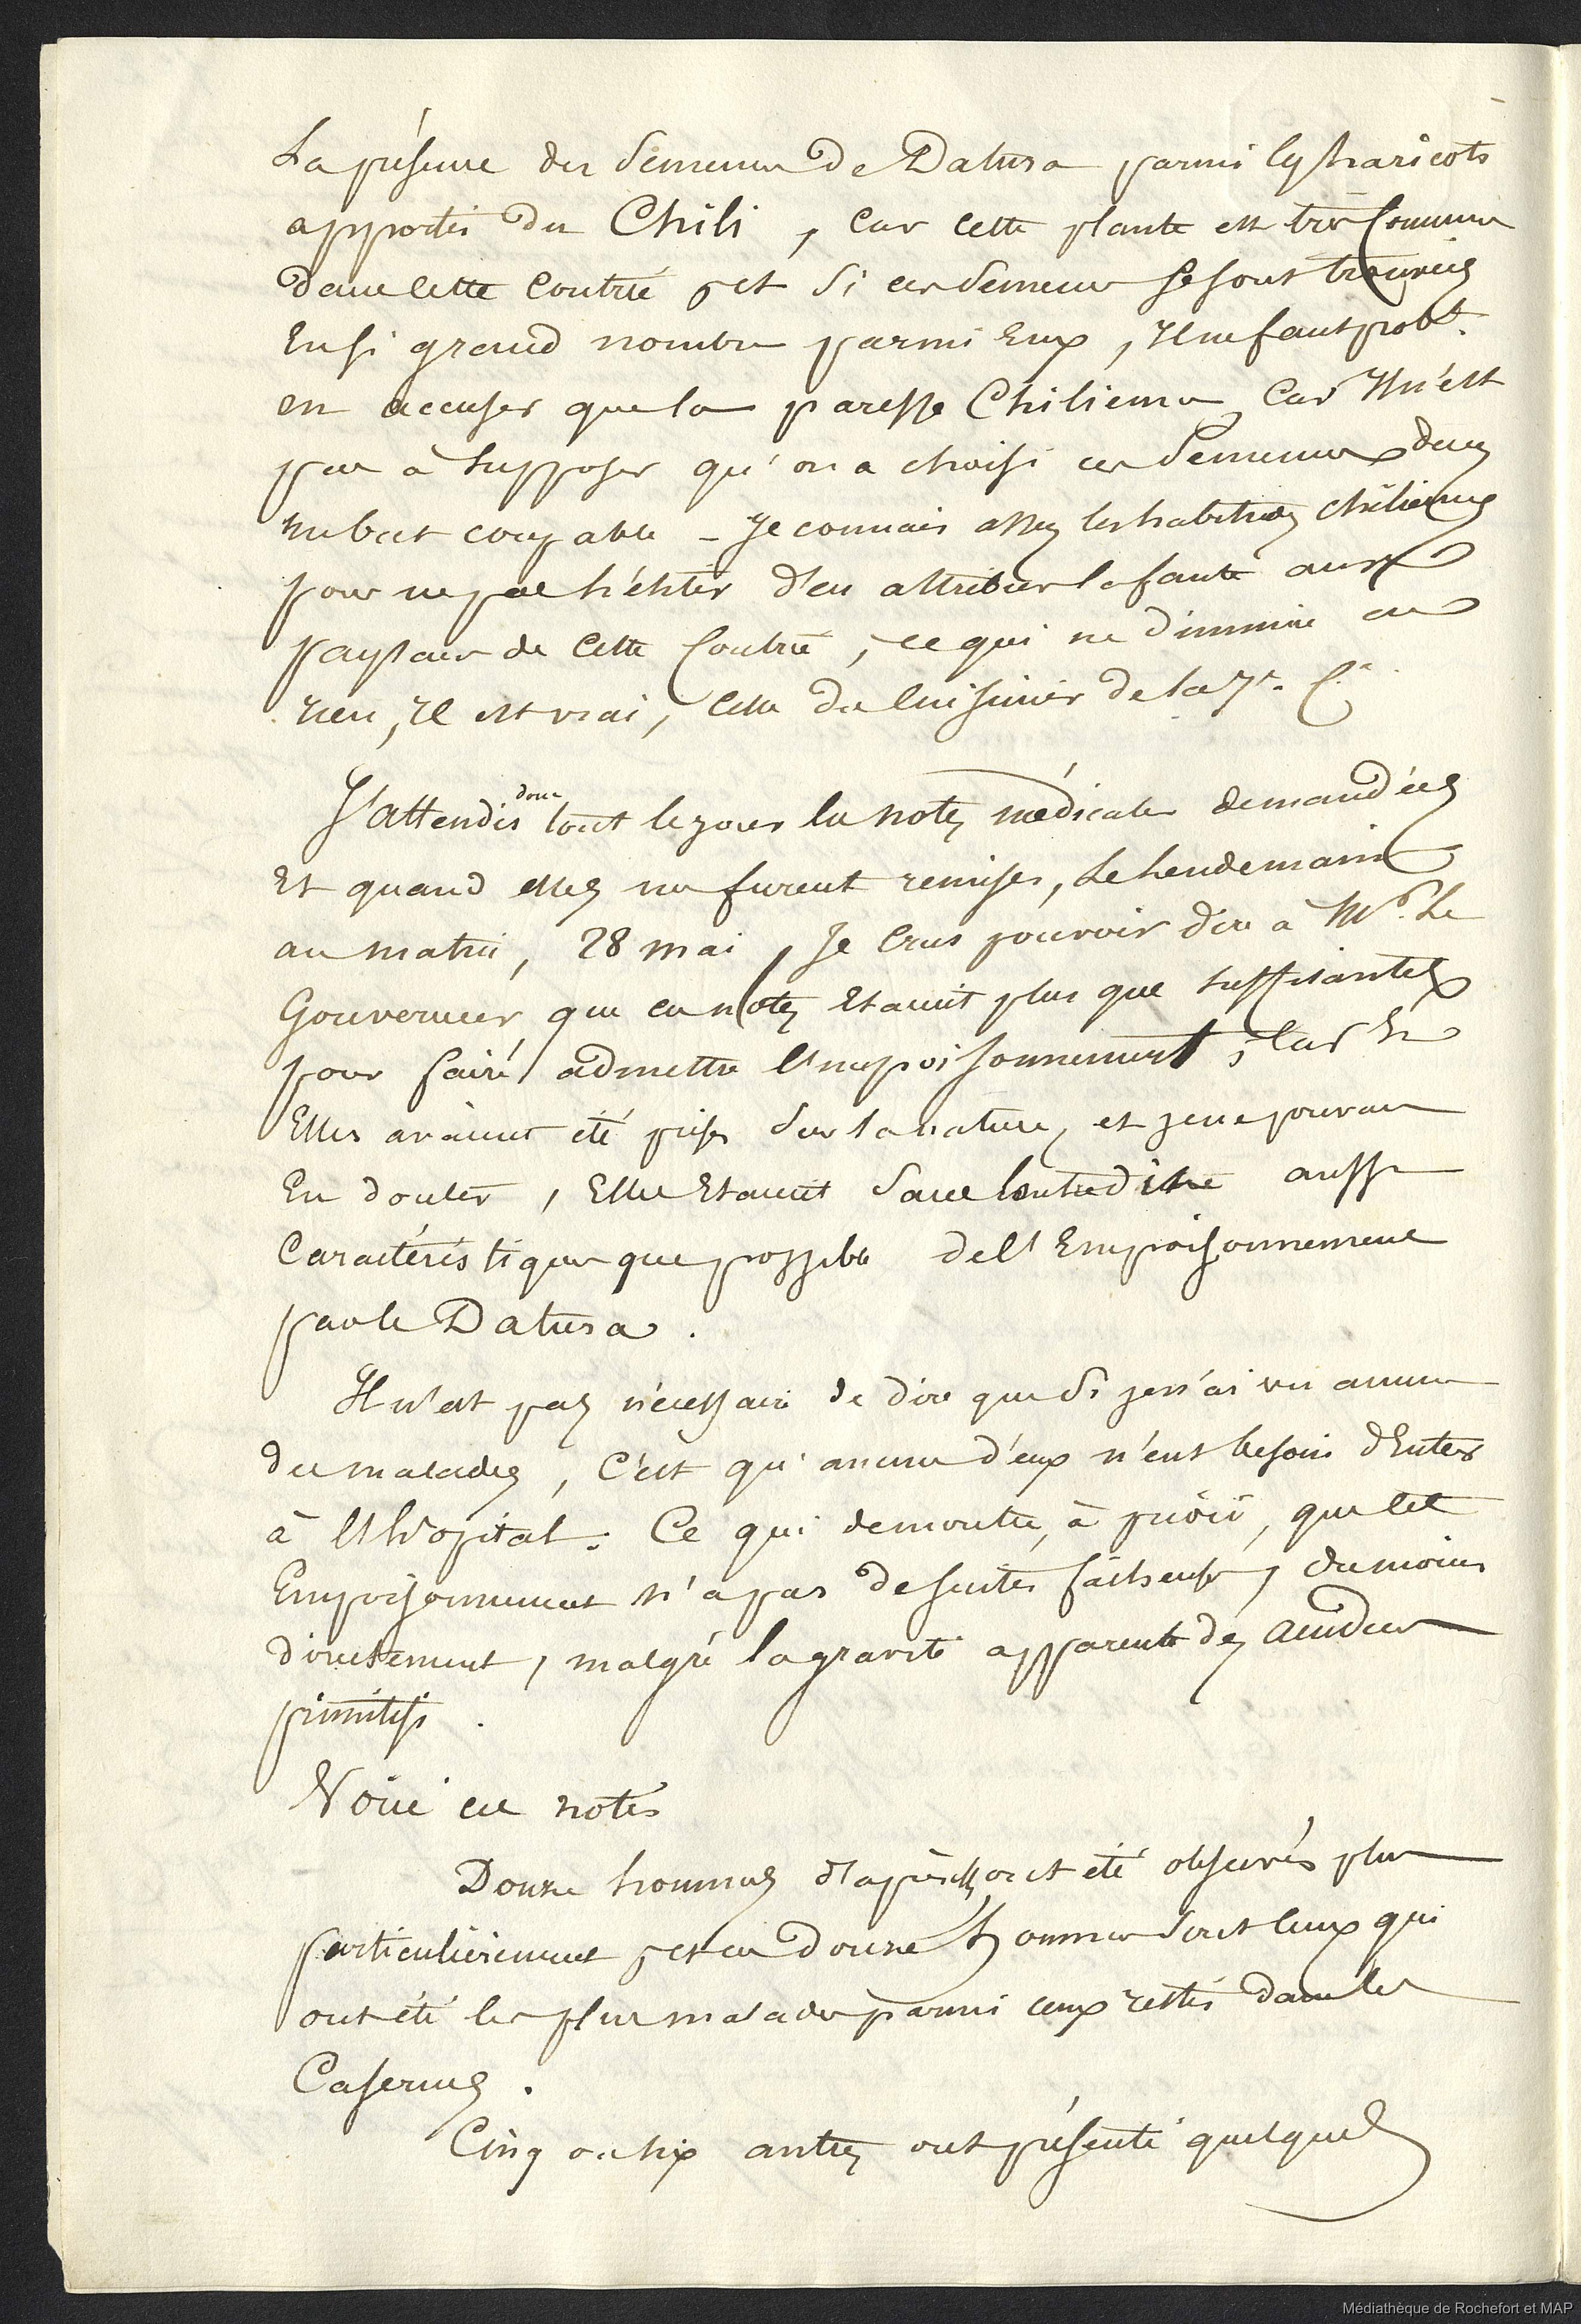 La présence des semences de Datura parmi les haricots
apportés du Chili, car cette plante est très commune
dans cette contrée, et si ces semences se sont trouvées
En si grand nombre parmi Eux, Il ne faut probt.
en accuser que la paresse Chilienne, Car Il n'est
pas à supposer qu'on a choisi ces semences dans
un but coupable - Je connais assez les habitudes chiliennes
pour ne pas hésiter d'en attribuer la faute aux
paysans de Cette Contrée, ce qui ne diminue en
rien, Il est vrai, Celle du Cuisinier de la 7e. Cie.
J'attendis donc tout le jour les notes médicales demandées
Et quand elles me furent remises, le lendemain
au matin, 28 mai, Je Crus pouvoir dire à Mr. Le
Gouverneur, que ces notes Etaient plus que suffisantes
pour faire admettre l'Empoisonnement, Car Si
Elles avaient été prises sur la nature, et je ne pouvais
En douter, Elles Etaient sans contredit aussi
Caractéristiques que possible de l'Empoisonnement
par le Datura.
Il n'est pas nécessaire de dire que si je n'ai vu aucun
des malades, C'est qu'aucun d'eux n'eut besoin d'Entrer
à l'hôpital. Ce qui démontre, à priori, que cet
Empoisonnement n'a pas de suites fâcheuses, du moins
directement, malgré la gravité apparente des accidents
primitifs.
Voici ces notes
Douze hommes d'après elles ont été observés plus
particulièrement, et ces douze hommes sont ceux qui
ont été les plus malades parmi ceux restés dans les
Casernes.
Cinq ou six autres ont présenté quelques
Médiathèque de Rochefort et MAP